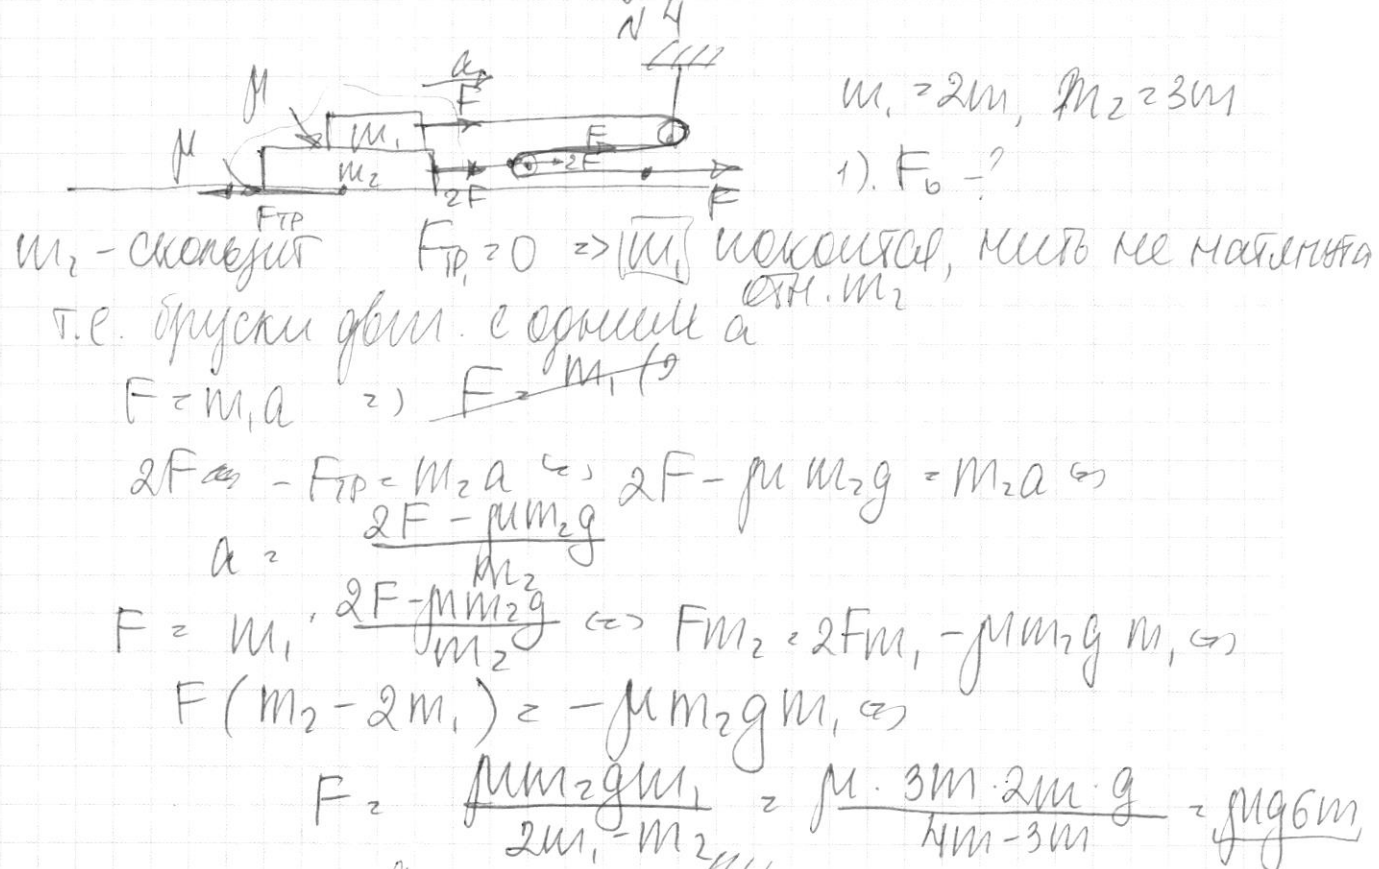 N 4
a
F
μ
m₁
F
μ
m₂
2F
2F
F
Fтр
m₁ = 2m, m₂ = 3m
1). F₀ - ?
m₂ - скользит Fтр₁ = 0 => m₁ покоится, нить не натянута
отн. m₂
т.е. бруски двиг. с одним a
F = m₁a =) F = m₁(
2F - Fтр = m₂a <=> 2F - μm₂g = m₂a <=>
a = (2F - μm₂g)/m₂
F = m₁ · (2F - μm₂g)/m₂ <=> Fm₂ = 2Fm₁ - μm₂g m₁ <=>
F(m₂ - 2m₁) = -μm₂gm₁ <=>
F = μm₂gm₁/(2m₁ - m₂) = μ · 3m · 2m · g/(4m - 3m) = μg6m